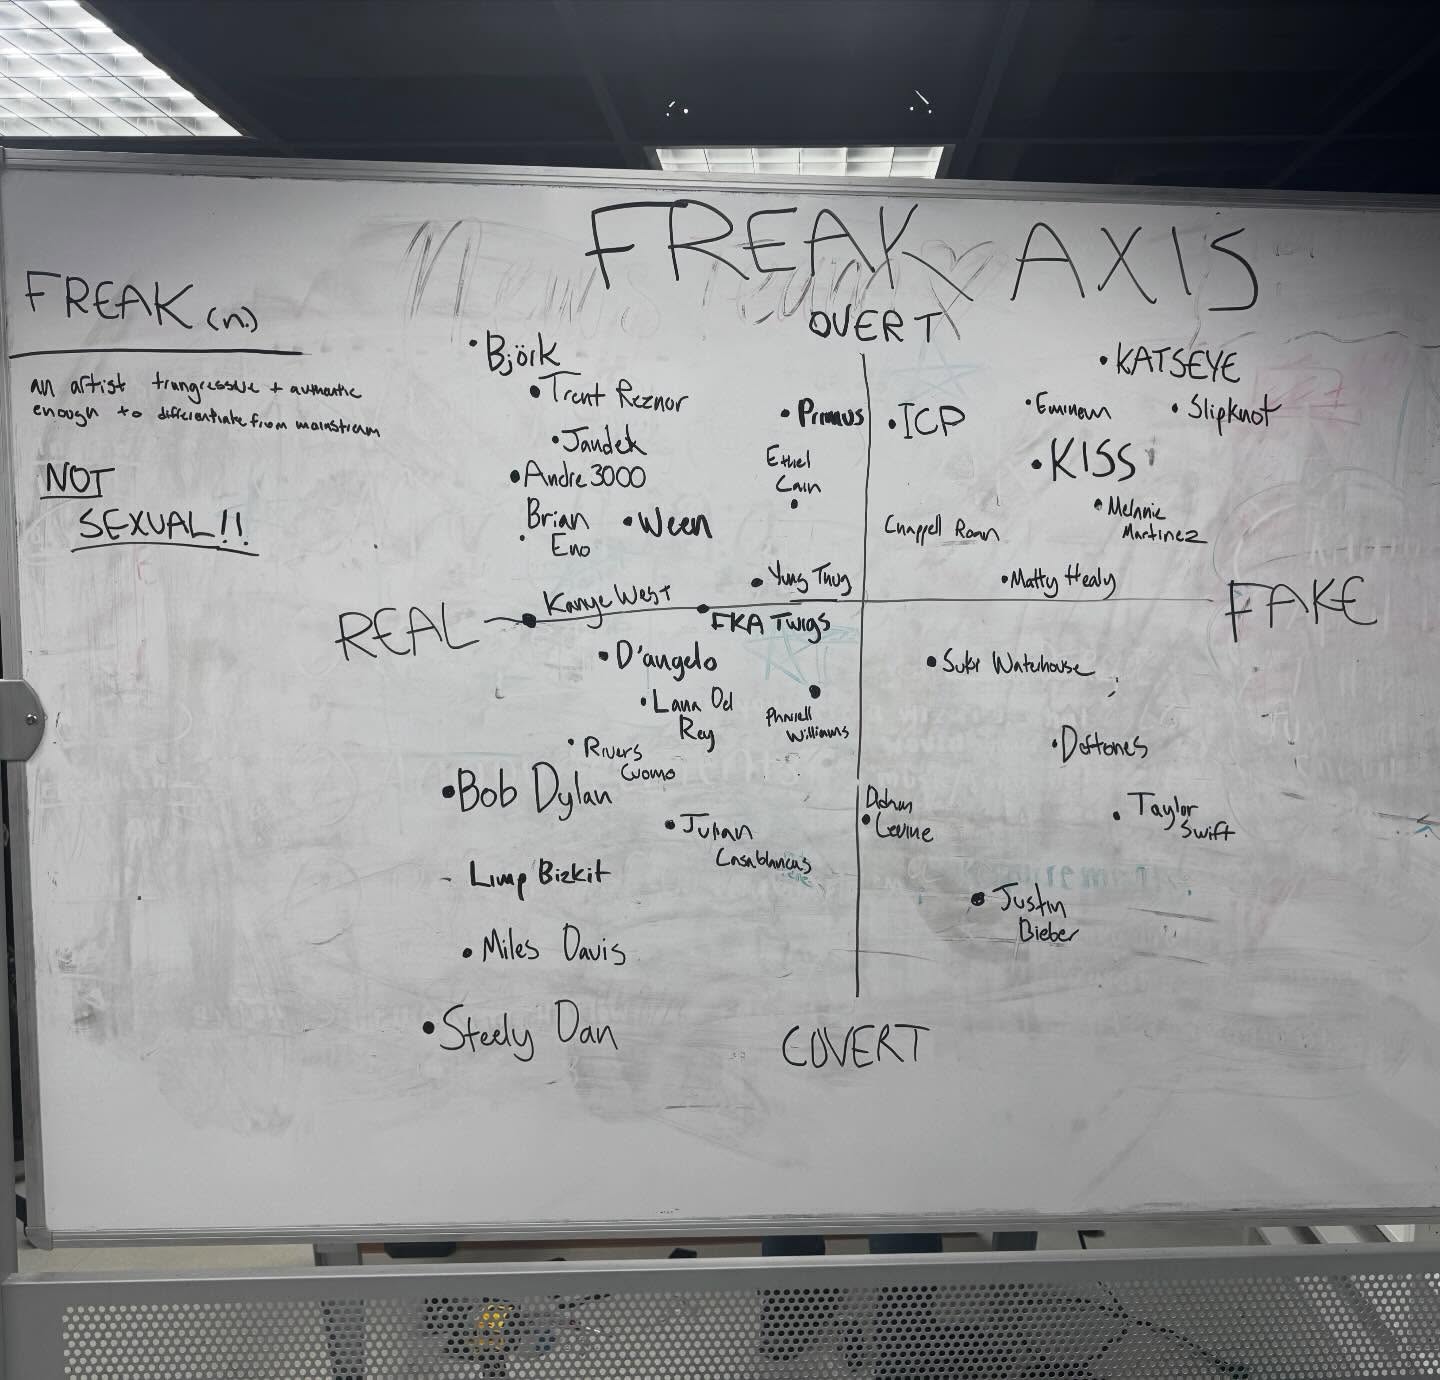 FREAK AXIS
FREAK (n.)
an artist trangressive + authentic
enough to differentiate from mainstream
NOT
SEXUAL!!
OVERT
• Björk
• Trent Reznor
• Jandek
• Andre 3000
Brian
• Eno
• Ween
• Primus
Ethel
Cain
•
• Yung Thug
• ICP
• KATSEYE
• Eminem
• Slipknot
• KISS
• Melanie
Martinez
Chappell Roan
• Matty Healy
REAL
Kanye West
FKA Twigs
FAKE
• D'angelo
• Lana Del
Rey
Pharrell
Williams
• Rivers
Cuomo
• Bob Dylan
• Julian
Casablancas
- Limp Bizkit
• Miles Davis
• Steely Dan
• Suki Waterhouse
• Deftones
• Taylor
Swift
• Levine
• Justin
Bieber
COVERT